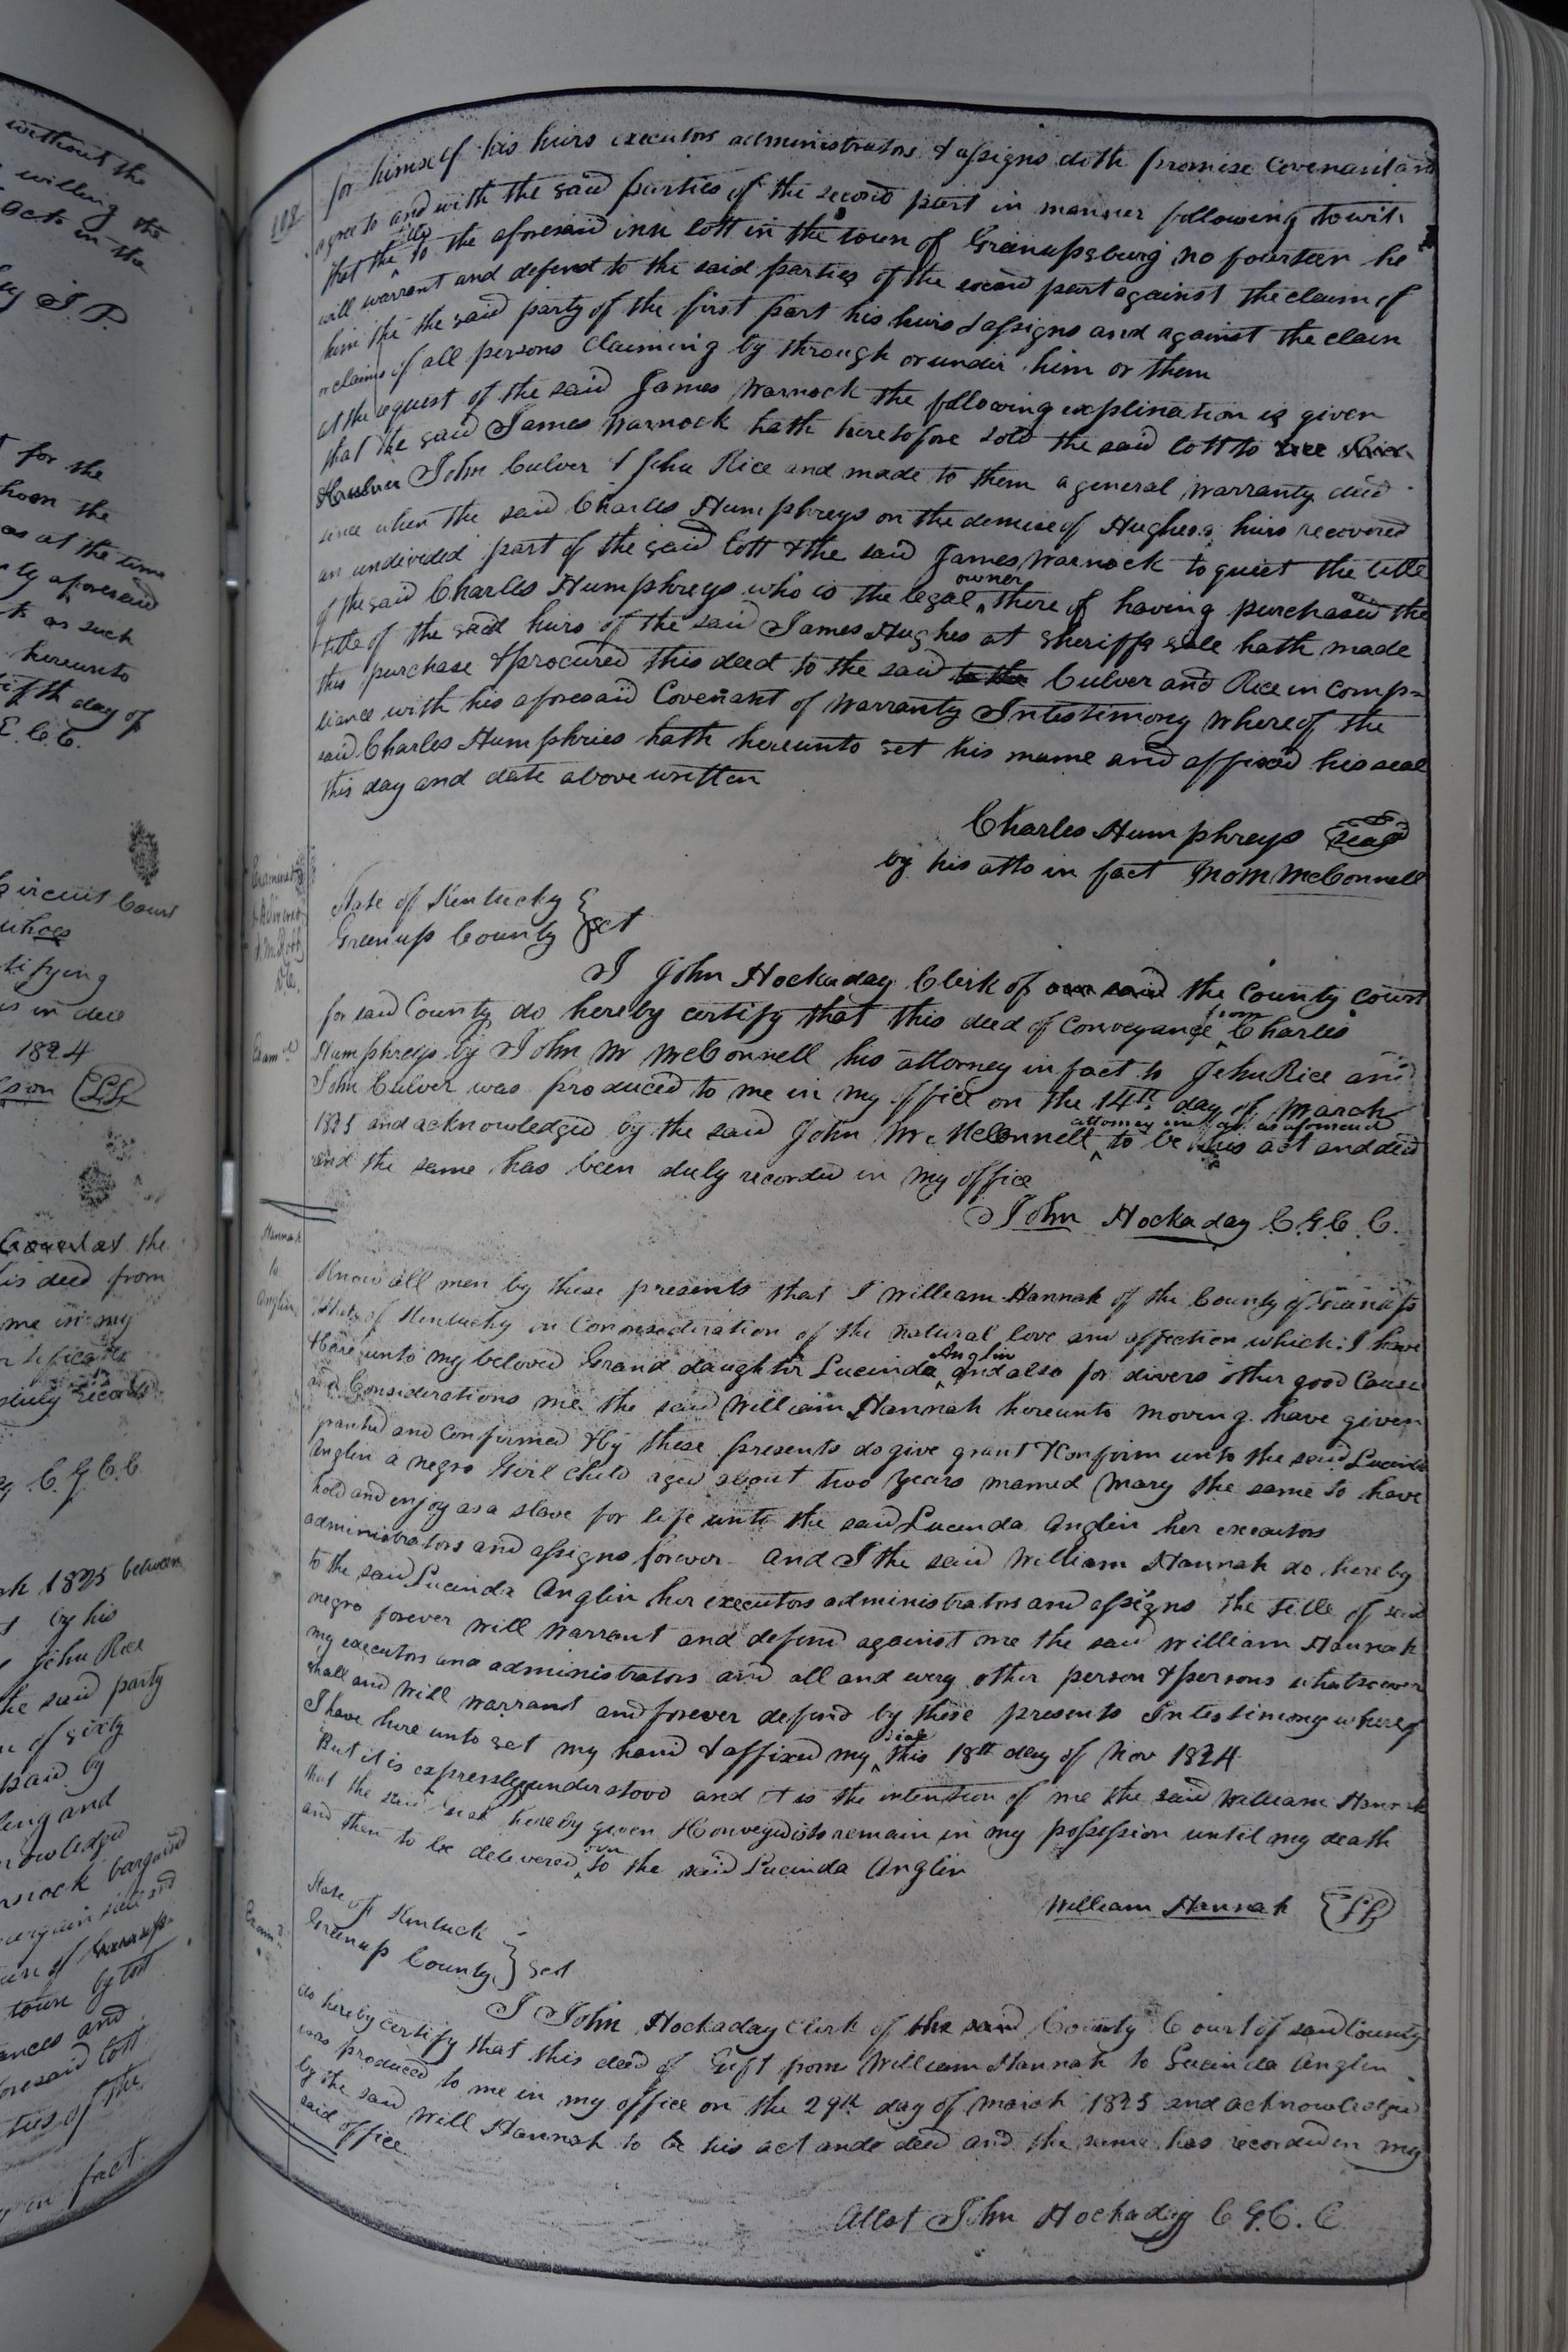 without the
willing the
acts in the
J. P.
for the
as at the time
aforesaid
as such
hereunto
fifth day of
Circuit Court
tifying
is in due
1824
his deed from
me in my
duly recorded
C. G. C. C.
1825 between
by his
John Rice
the said party
of sixty
said by
town by lot
ances and
foresaid lott
ties of the
in fact
for himself his heirs executors administrators & assigns doth promise Covenant and
agree to and with the said parties of the second part in manner following towit
that the title to the aforesaid inn lott in the town of Greenupsburg no fourteen he
will warrant and defend to the said parties of the second part against the claim of
him the the said party of the first part his heirs & assigns and against the claim
or claims of all persons claiming by through or under him or them
at the request of the said James Warnock the following explination is given
that the said James Warnock hath heretofore sold the said lott to
John Culver & John Rice and made to them a general warranty deed
since when the said Charles Humphreys on the demise of Hughes's heirs recovered
an undivided part of the said lott & the said James Warnock to quiet the title
of the said Charles Humphreys who is the legal owner there of having purchased the
title of the said heirs of the said James Hughes at sheriffs sale hath made
this purchase & procured this deed to the said to the Culver and Rice in comp=
liance with his aforesaid Covenant of Warranty In testimony whereof the
said Charles Humphries hath hereunto set his name and affixed his seal
this day and date above written
Charles Humphreys seal
by his atto in fact Jno M McConnell
State of Kentucky
Greenup County sct
I John Hockaday Clerk of the County court
for said County do hereby certify that this deed of conveyance from Charles
Humphreys by John M McConnell his attorney in fact to John Rice and
John Culver was produced to me in my office on the 14th day of March
1825 and acknowledged by the said John M. McConnell attorney as aforesaid to be his act and deed
and the same has been duly recorded in my office
John Hockaday C. G. C. C.
Hannah
to
Anglin
Know all men by these presents that I William Hannah of the County of Greenup
State of Kentucky in Consideration of the natural love and affection which I have
Have unto my beloved Grand daughter Lucinda Anglin and also for divers other good Cause
and Considerations me the said William Hannah hereunto moving have given
granted and confirmed & by these presents do give grant & confirm unto the said Lucinda
Anglin a negro Girl child aged about two years named Mary the same to have
hold and enjoy as a slave for life unto the said Lucinda Anglin her executors
administrators and assigns forever and I the said William Hannah do hereby
to the said Lucinda Anglin her executors administrators and assigns the title of said
negro forever will warrant and defend against me the said William Hannah
my executors and administrators and all and every other person & persons whatsoever
shall and will warrant and forever defend by these presents In testimony whereof
I have here unto set my hand & affixed my seal this 18th day of Nov 1824
But it is expressly understood and it is the intention of me the said William Hannah
that the said hereby given & Conveyed is to remain in my possession until my death
and then to be delivered to the said Lucinda Anglin
William Hannah LS
State of Kentuck
Greenup County sct
I John Hockaday Clerk of the said County Court of said County
do hereby certify that this deed of Gift from William Hannah to Lucinda Anglin
was produced to me in my office on the 29th day of March 1825 and acknowledged
by the said Will Hannah to be his act and deed and the same has recorded in my
said office
Attest John Hockaday C. G. C. C